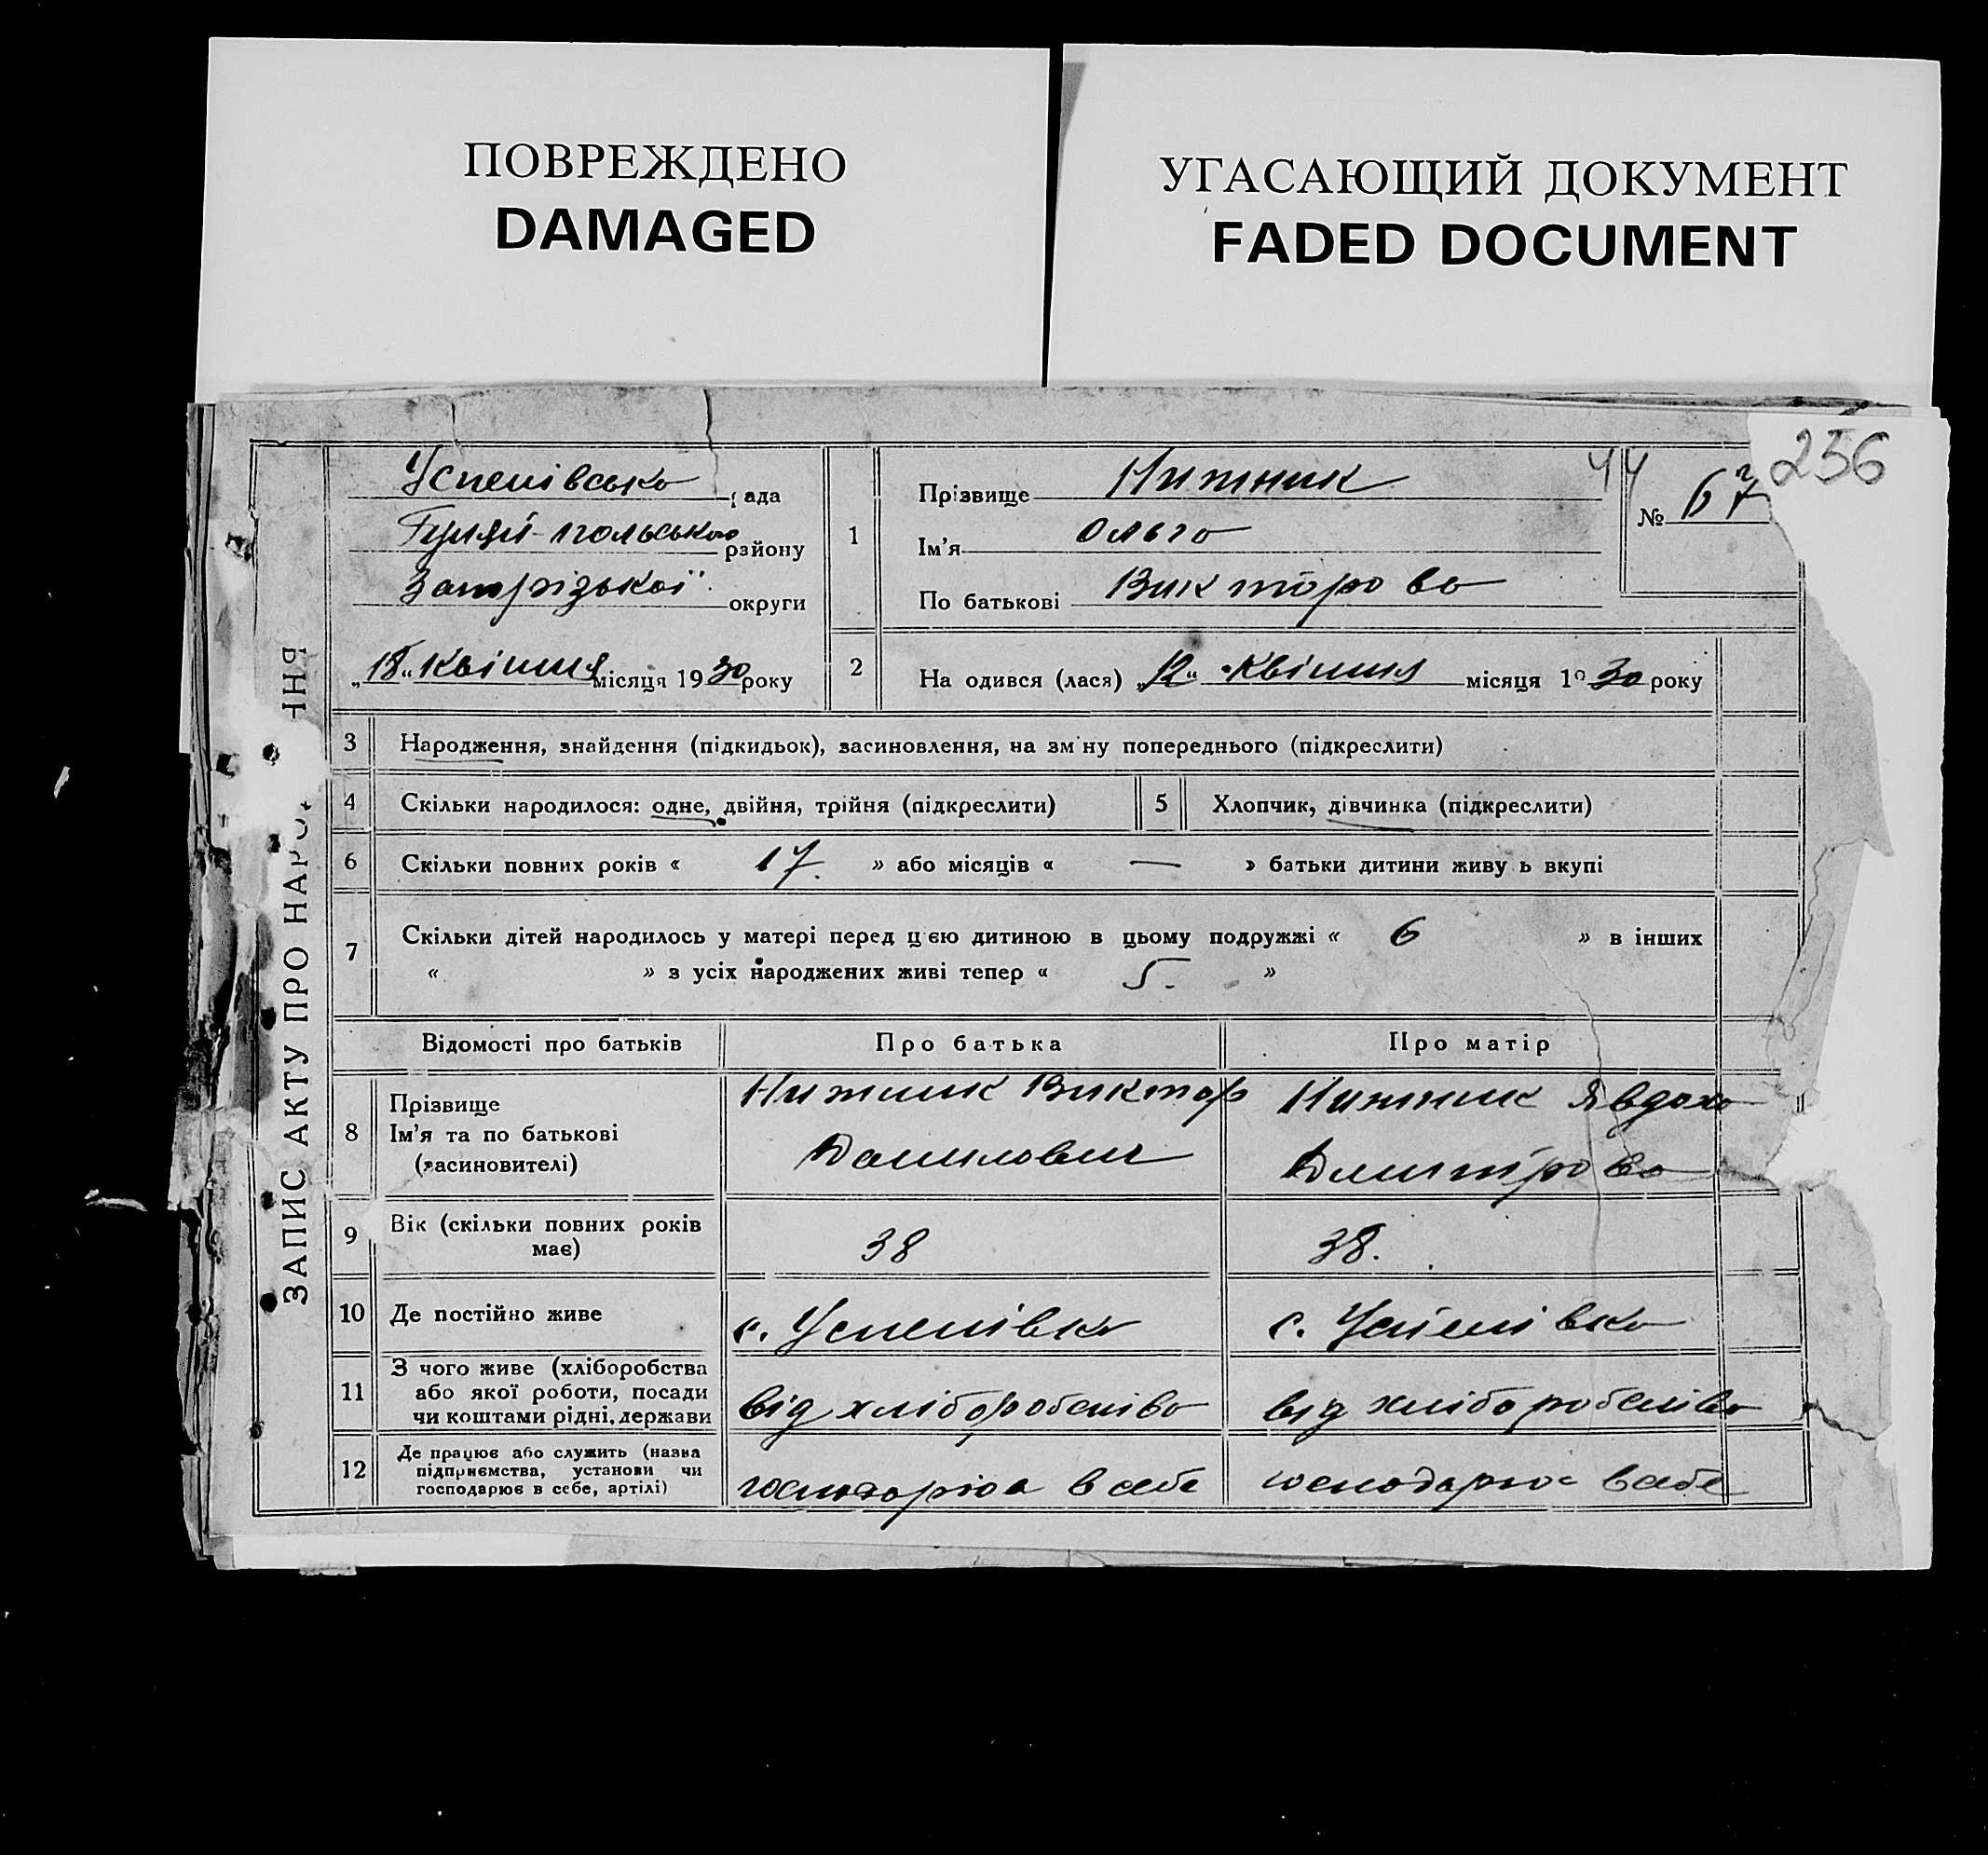 ПОВРЕЖДЕНО
DAMAGED
УГАСАЮЩИЙ ДОКУМЕНТ
FADED DOCUMENT
256
ЗАПИС АКТУ ПРО НАРО ННЯ
Успенівсько рада
Гуляй-польського району
Запорізької округи
„18" квітня місяця 1930 року
1
Прізвище Нижник
Ім'я Ольга
По батькові Викторова
44
№ 67
2
На одився (лася) „12" квітня місяця 1930 року
3 Народження, знайдення (підкидьок), засиновлення, на зміну попереднього (підкреслити)
4 Скільки народилося: одне, двійня, трійня (підкреслити)
5 Хлопчик, дівчинка (підкреслити)
6 Скільки повних років « 17. » або місяців « — » батьки дитини живу ь вкупі
7 Скільки дітей народилось у матері перед цією дитиною в цьому подружжі « 6 » в інших
« » з усіх народжених живі тепер « 5. »
Відомості про батьків Про батька Про матір
8 Прізвище
Ім'я та по батькові
(засиновителі)
Нижник Виктор
Данилович
Нижник Явдоха
Дмитрова
9 Вік (скільки повних років
має)
38
38.
10 Де постійно живе с. Успенівка с. Успенівка
11 З чого живе (хліборобства
або якої роботи, посади
чи коштами рідні, держави
від хліборобства
від хліборобства
12 Де працює або служить (назва
підприємства, установи чи
господарює в себе, артілі)
господарює в себе
господарює в себе